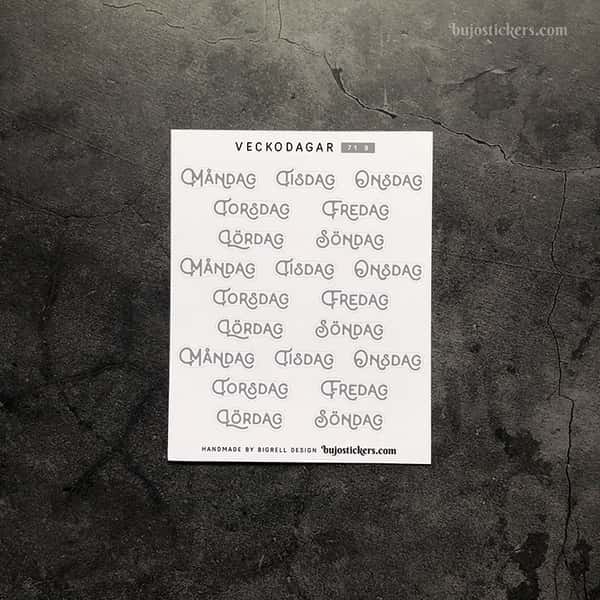 bujostickers.com
VECKODAGAR 71 9
MÅNDAG TISDAG ONSDAG
TORSDAG FREDAG
LÖRDAG SÖNDAG
MÅNDAG TISDAG ONSDAG
TORSDAG FREDAG
LÖRDAG SÖNDAG
MÅNDAG TISDAG ONSDAG
TORSDAG FREDAG
LÖRDAG SÖNDAG
HANDMADE BY BIGRELL DESIGN bujostickers.com